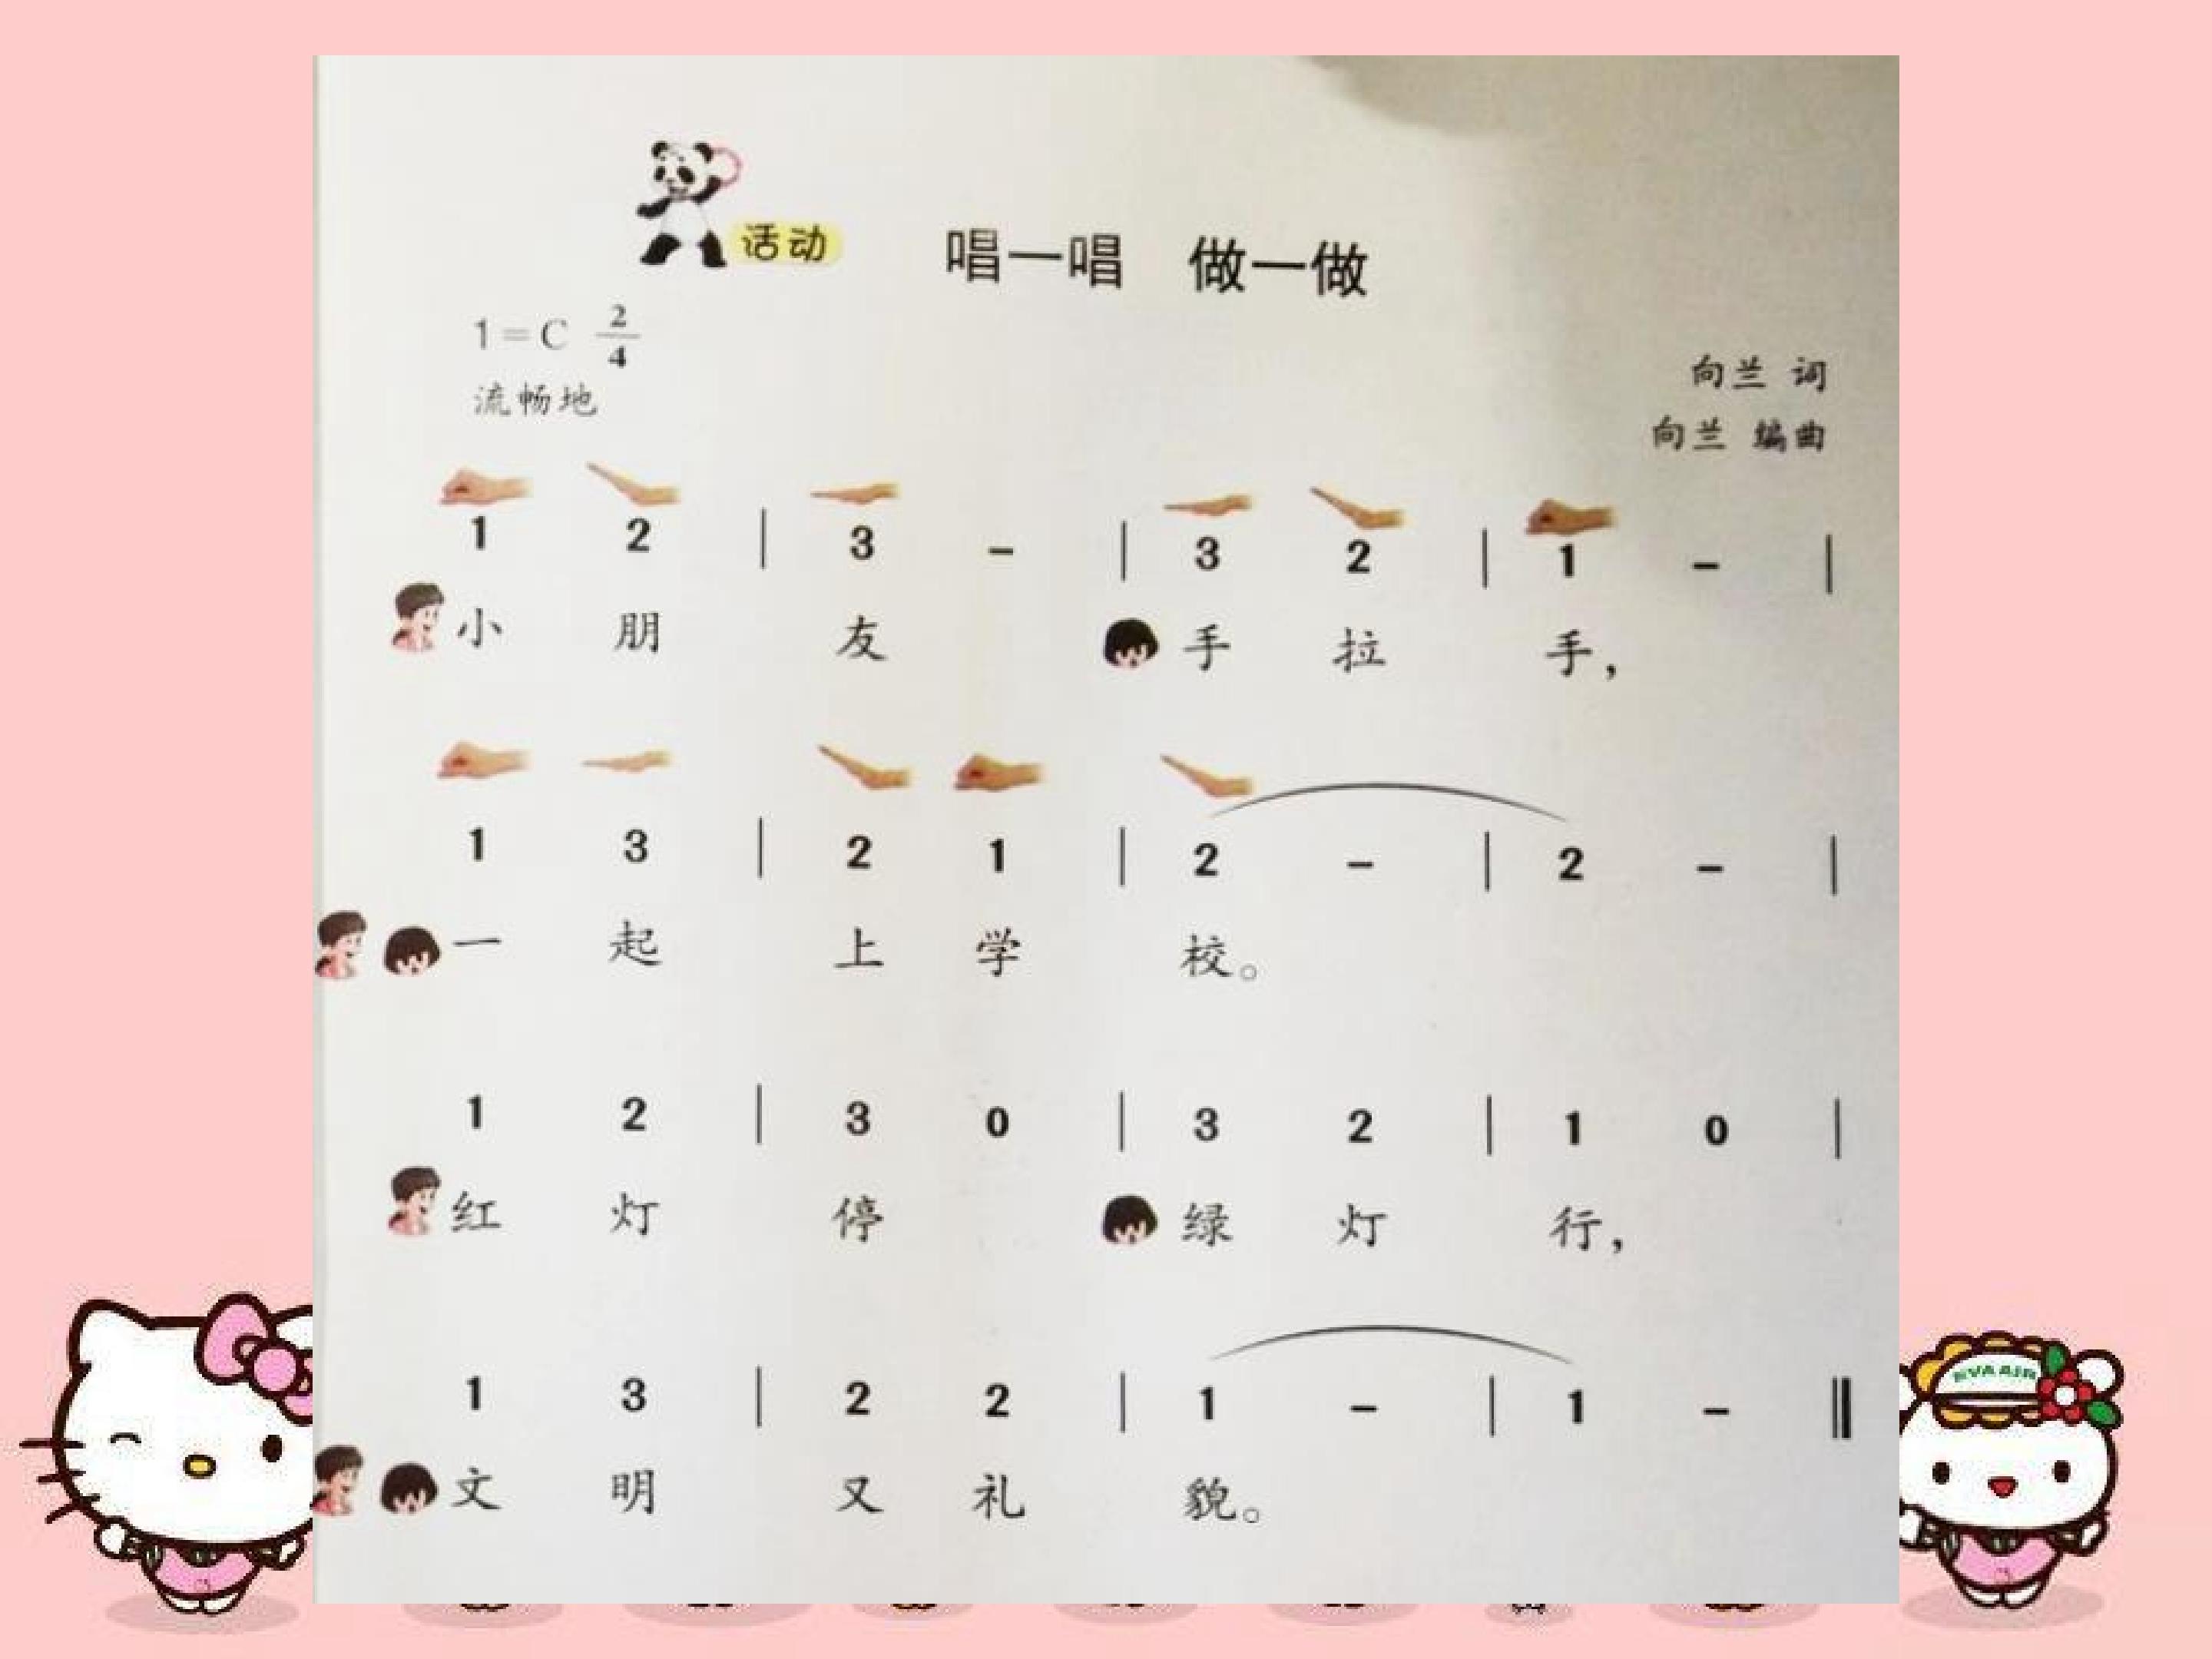 活动 唱一唱 做一做
1=C 2/4
流畅地
向兰 词
向兰 编曲
1 2 | 3 – | 3 2 | 1 – |
小 朋 友 手 拉 手，
1 3 | 2 1 | 2 – | 2 – |
一 起 上 学 校。
1 2 | 3 0 | 3 2 | 1 0 |
红 灯 停 绿 灯 行，
1 3 | 2 2 | 1 – | 1 – ‖
文 明 又 礼 貌。
EVA AIR